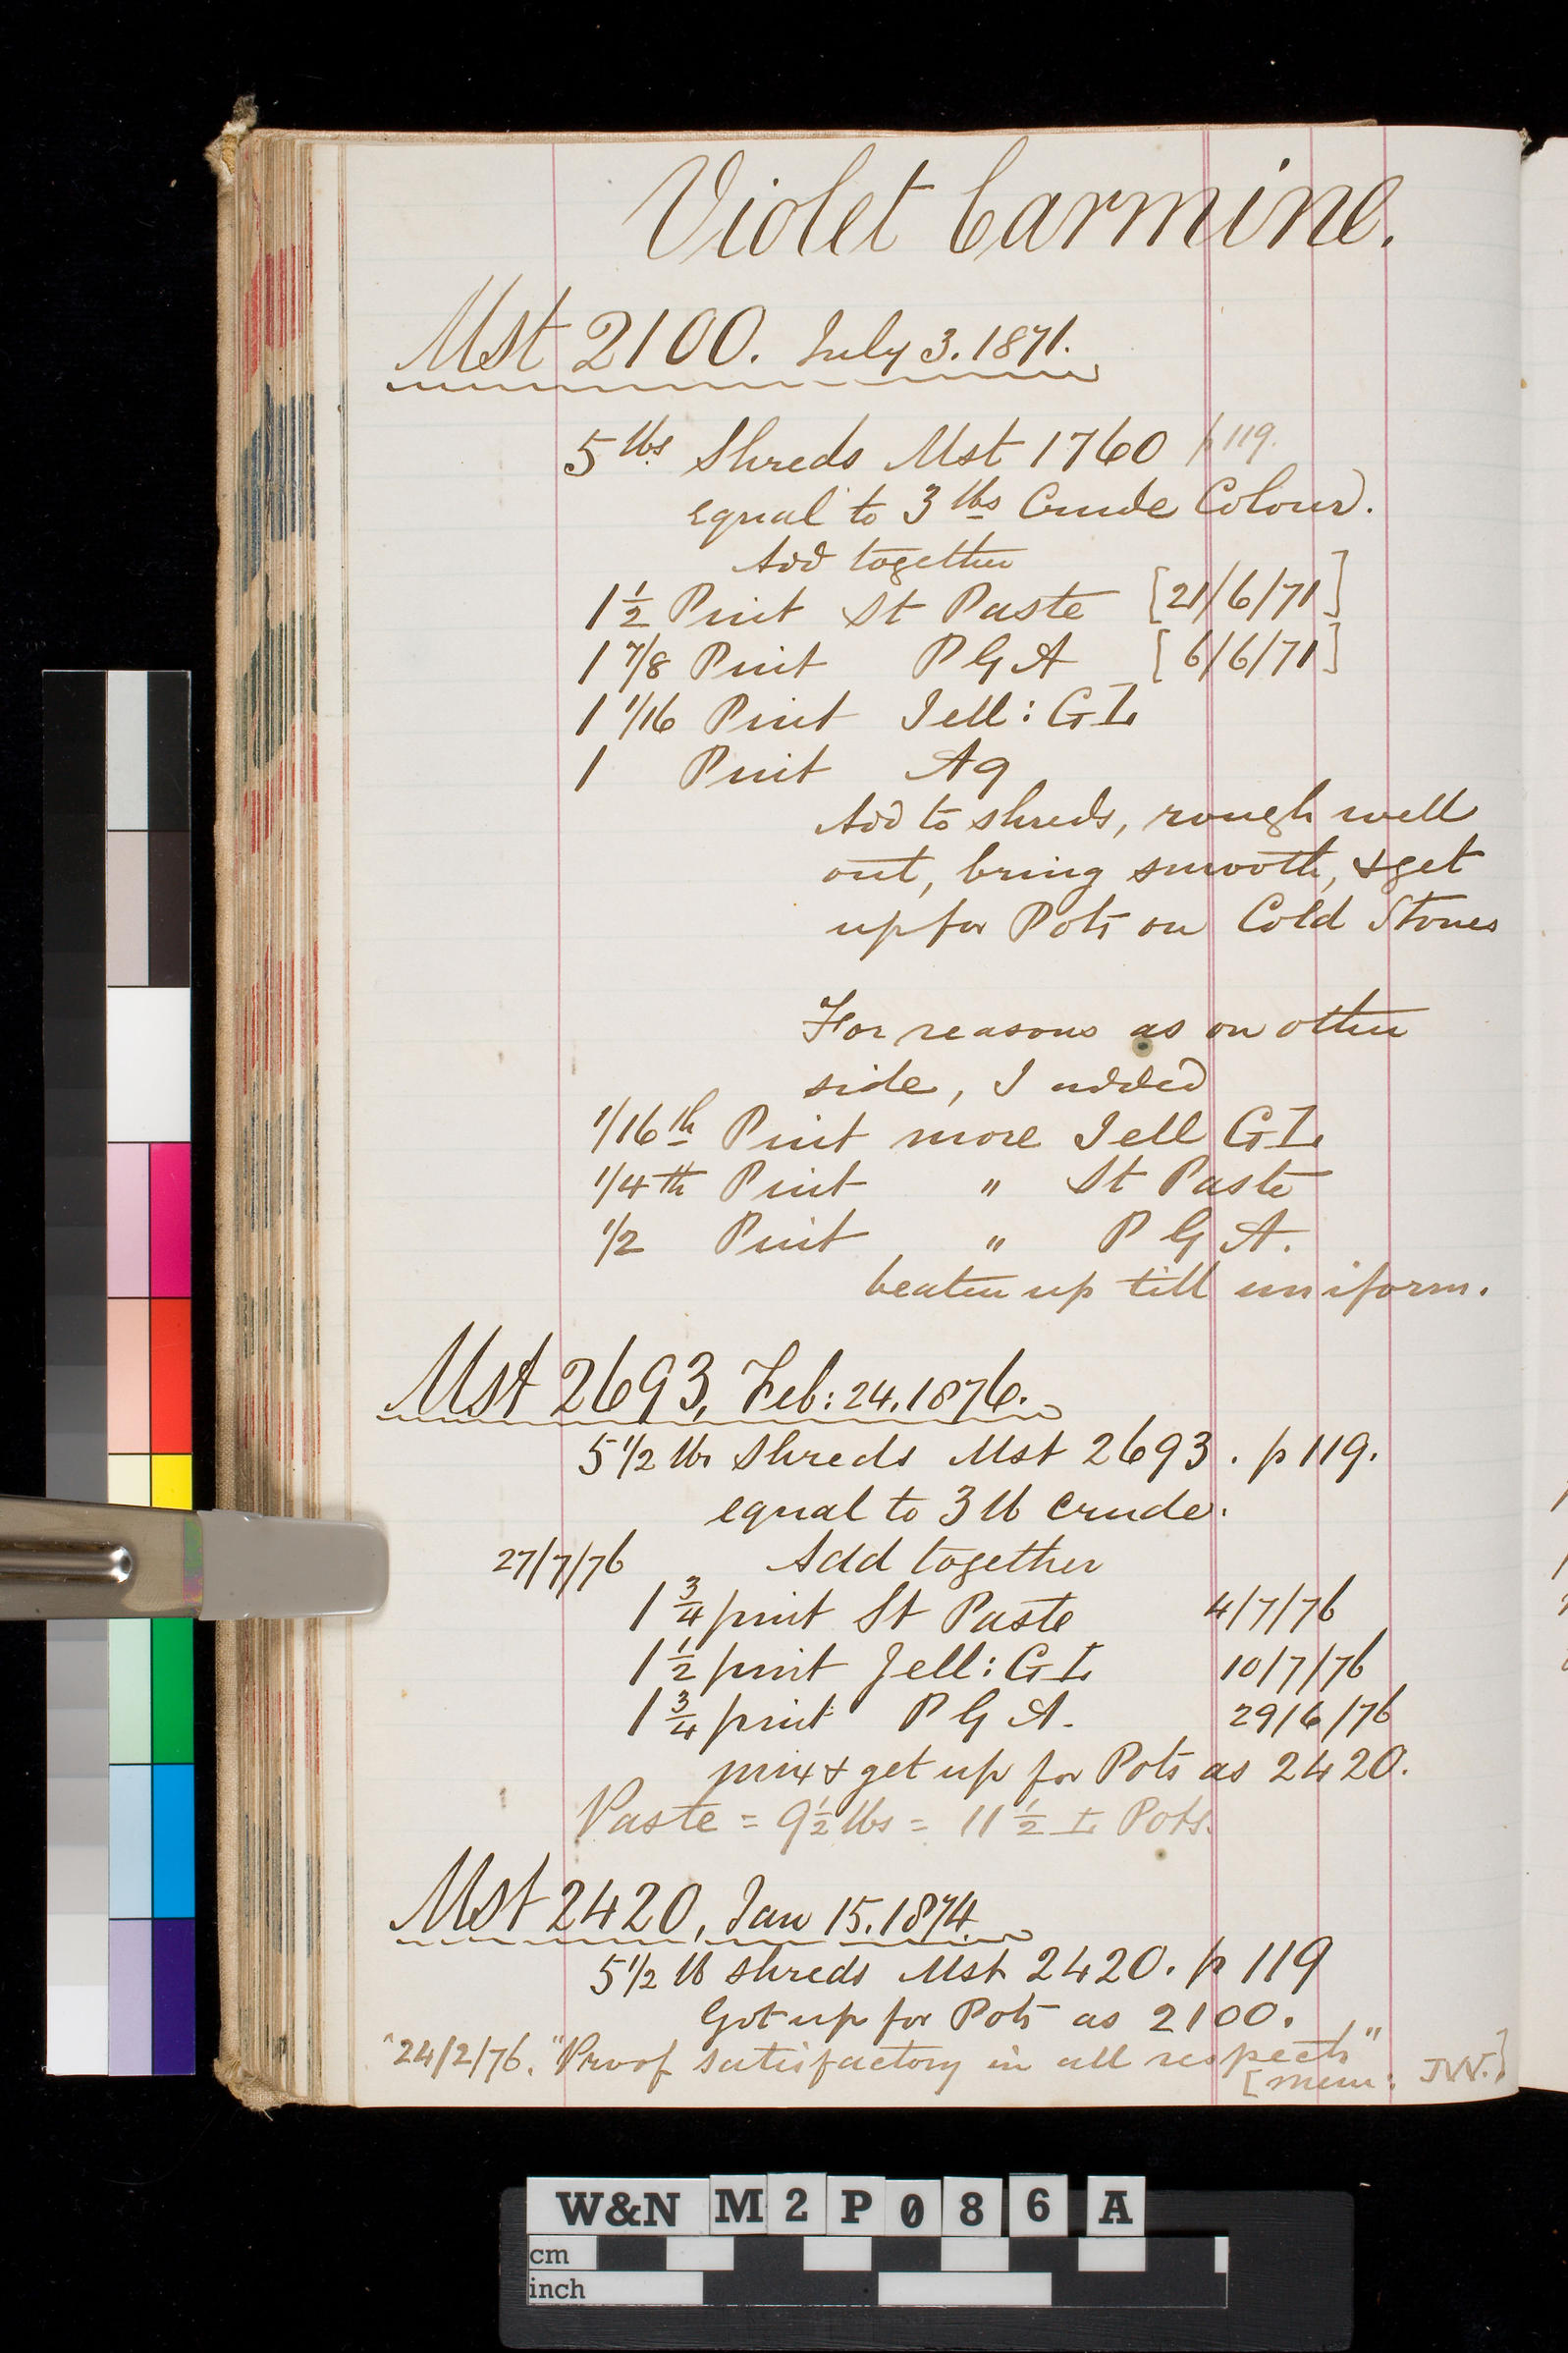 Violet Carmine.
Mst 2100. July 3. 1871.
5 lbs Shreds Mst 1760 p 119.
equal to 3 lbs Crude Colour.
Add together
1 1/2 Pint St Paste [21/6/71]
1 7/8 Pint P G A [6/6/71]
1 1/16 Pint Jell: G I
1 Pint Aq
Add to shreds, rough well
out, bring smooth, & get
up for Pots on Cold Stones
For reasons as on other
side, I added
1/16th Pint more Jell G I
1/4th Pint " St Paste
1/2 Pint " P G A.
beaten up till uniform.
Mst 2693, Feb: 24. 1876.
5 1/2 lbs Shreds Mst 2693. p 119.
equal to 3 lb crude.
27/7/76 Add together
1 3/4 pint St Paste 4/7/76
1 1/2 pint Jell: G I 10/7/76
1 3/4 pint P G A. 29/6/76
mix & get up for Pots as 2420.
Paste = 9 1/2 lbs = 11 1/2 I Pots.
Mst 2420, Jan 15. 1874.
5 1/2 lb shreds Mst 2420. p 119
Got up for Pots as 2100.
24/2/76. "Proof satisfactory in all respects"
[mem: JW.]
W&N M2P086A
cm
inch